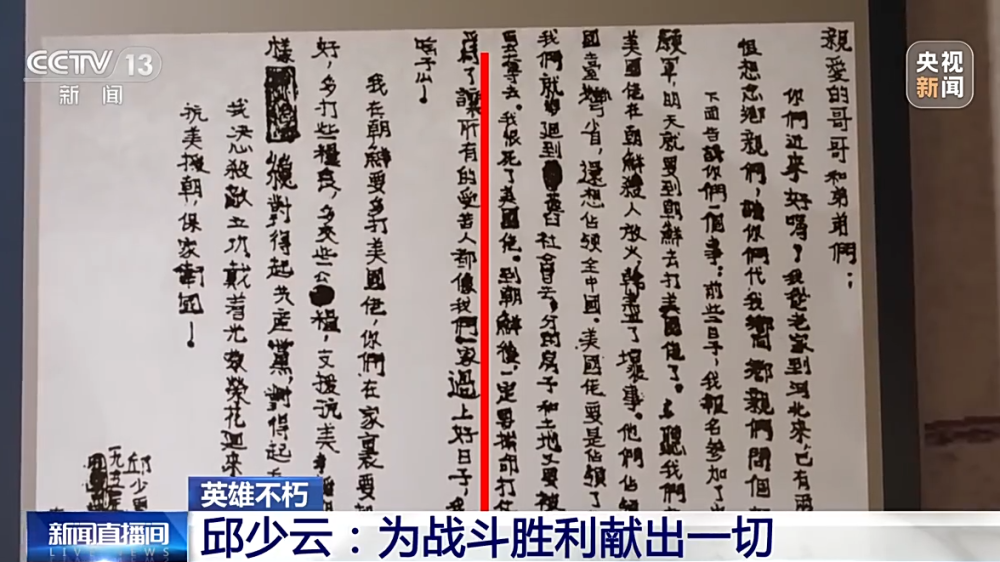 CCTV 13
新闻
央视
新闻
親愛的哥哥和弟弟們：
你們近來好嗎？我從老家到河北來，已有兩
想念鄉親們，請你們代我嚮鄉親們問個
下面告訴你們一個事：前些日子，我報名參加了
願軍，明天就要到朝鮮去打美國佬了。聽我們
美國佬在朝鮮殺人放火，幹盡了壞事。他們佔領
國臺灣省，還想佔領全中國。美國佬要是佔領了
我們就得迴到舊社會去。分的房子和土地又要被
奪去。我恨死了美國佬。到朝鮮後，一定要拼命打仗
爲了讓所有的受苦人都像我們一家過上好日子，我
啥子山！
我在朝鮮要多打美國佬，你們在家裏要
好，多打些糧食，多交些公糧，支援抗美
樣 纔對得起共產黨，對得起
我决心殺敵立功戴着光榮花迴來
抗美援朝保家衛國！
邱少雲
一九五
英雄不朽
新闻直播间
LIVE NEWS
邱少云：为战斗胜利献出一切